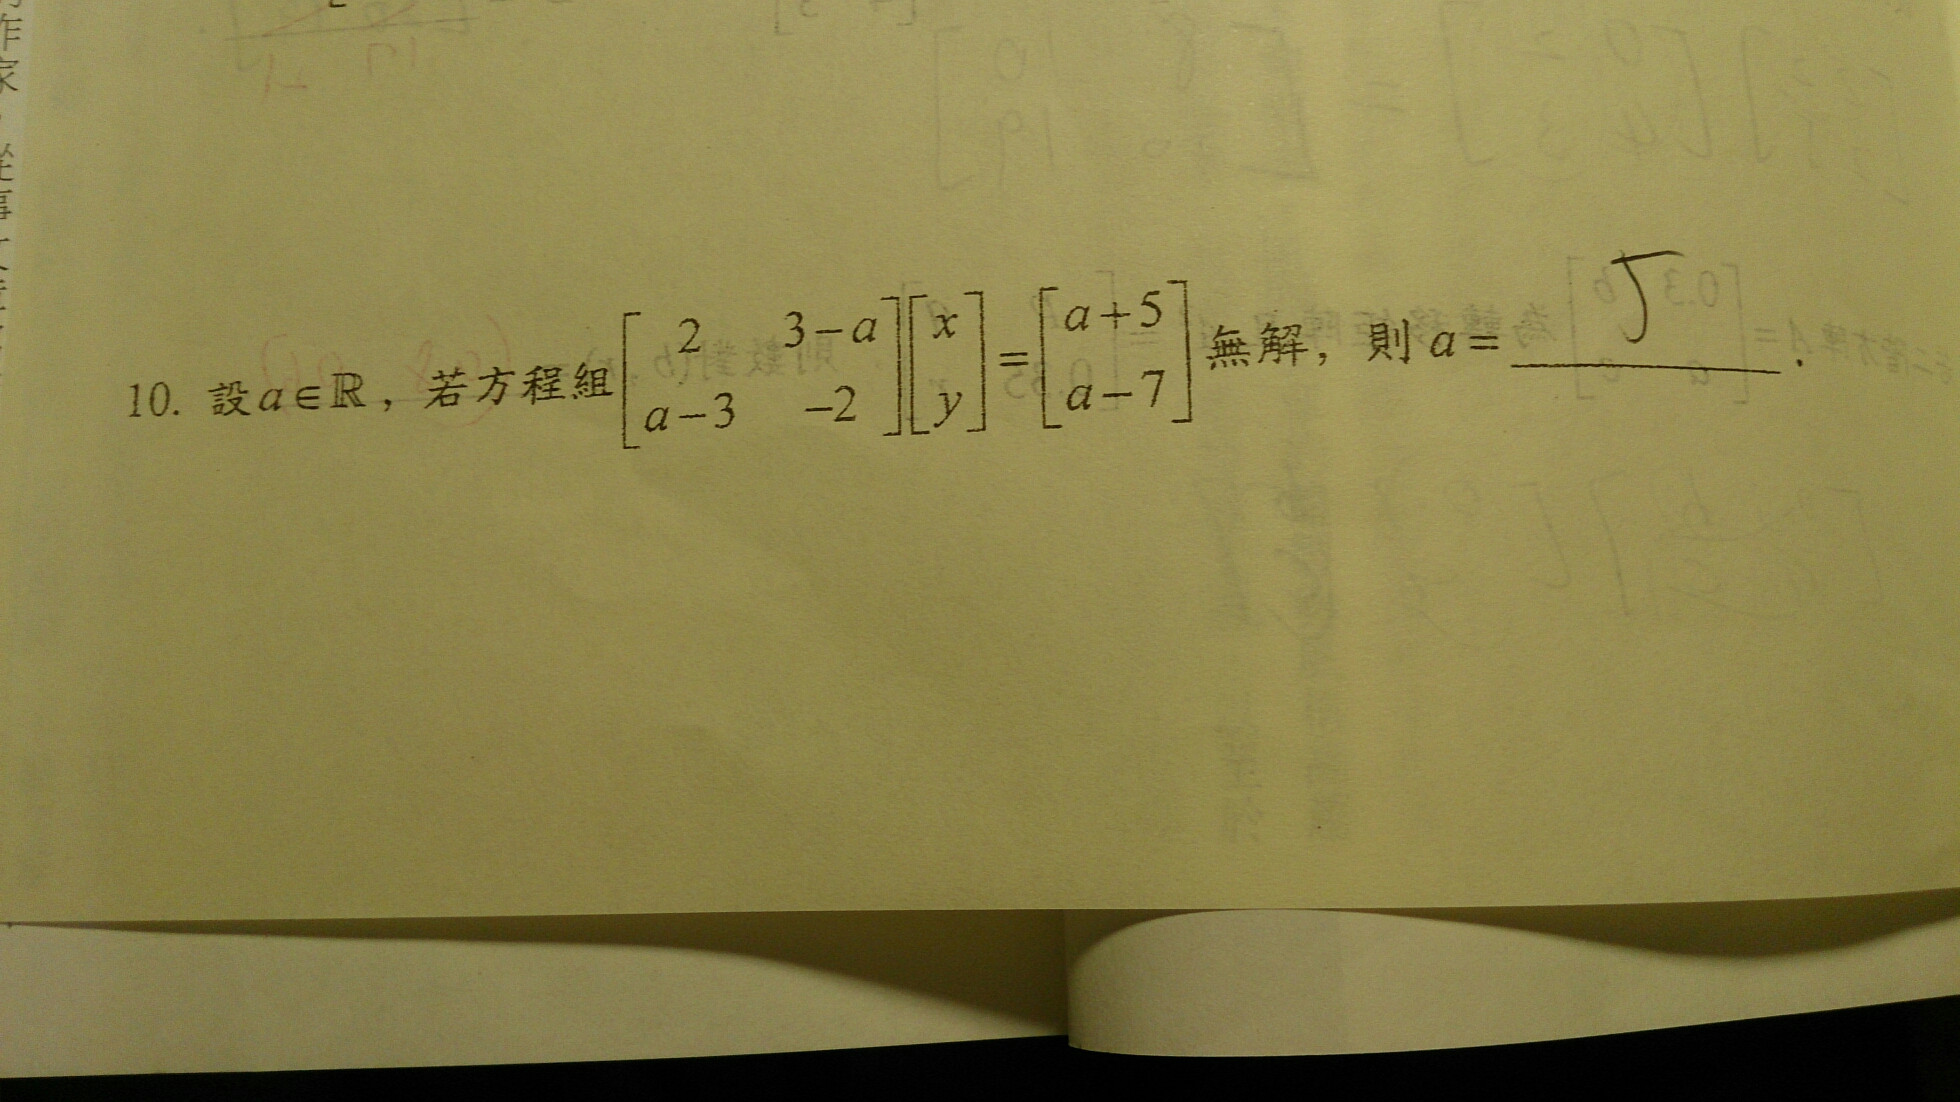 10. 設a∈ℝ，若方程組[2 3−a; a−3 −2][x; y]=[a+5; a−7]無解，則a= 5 .